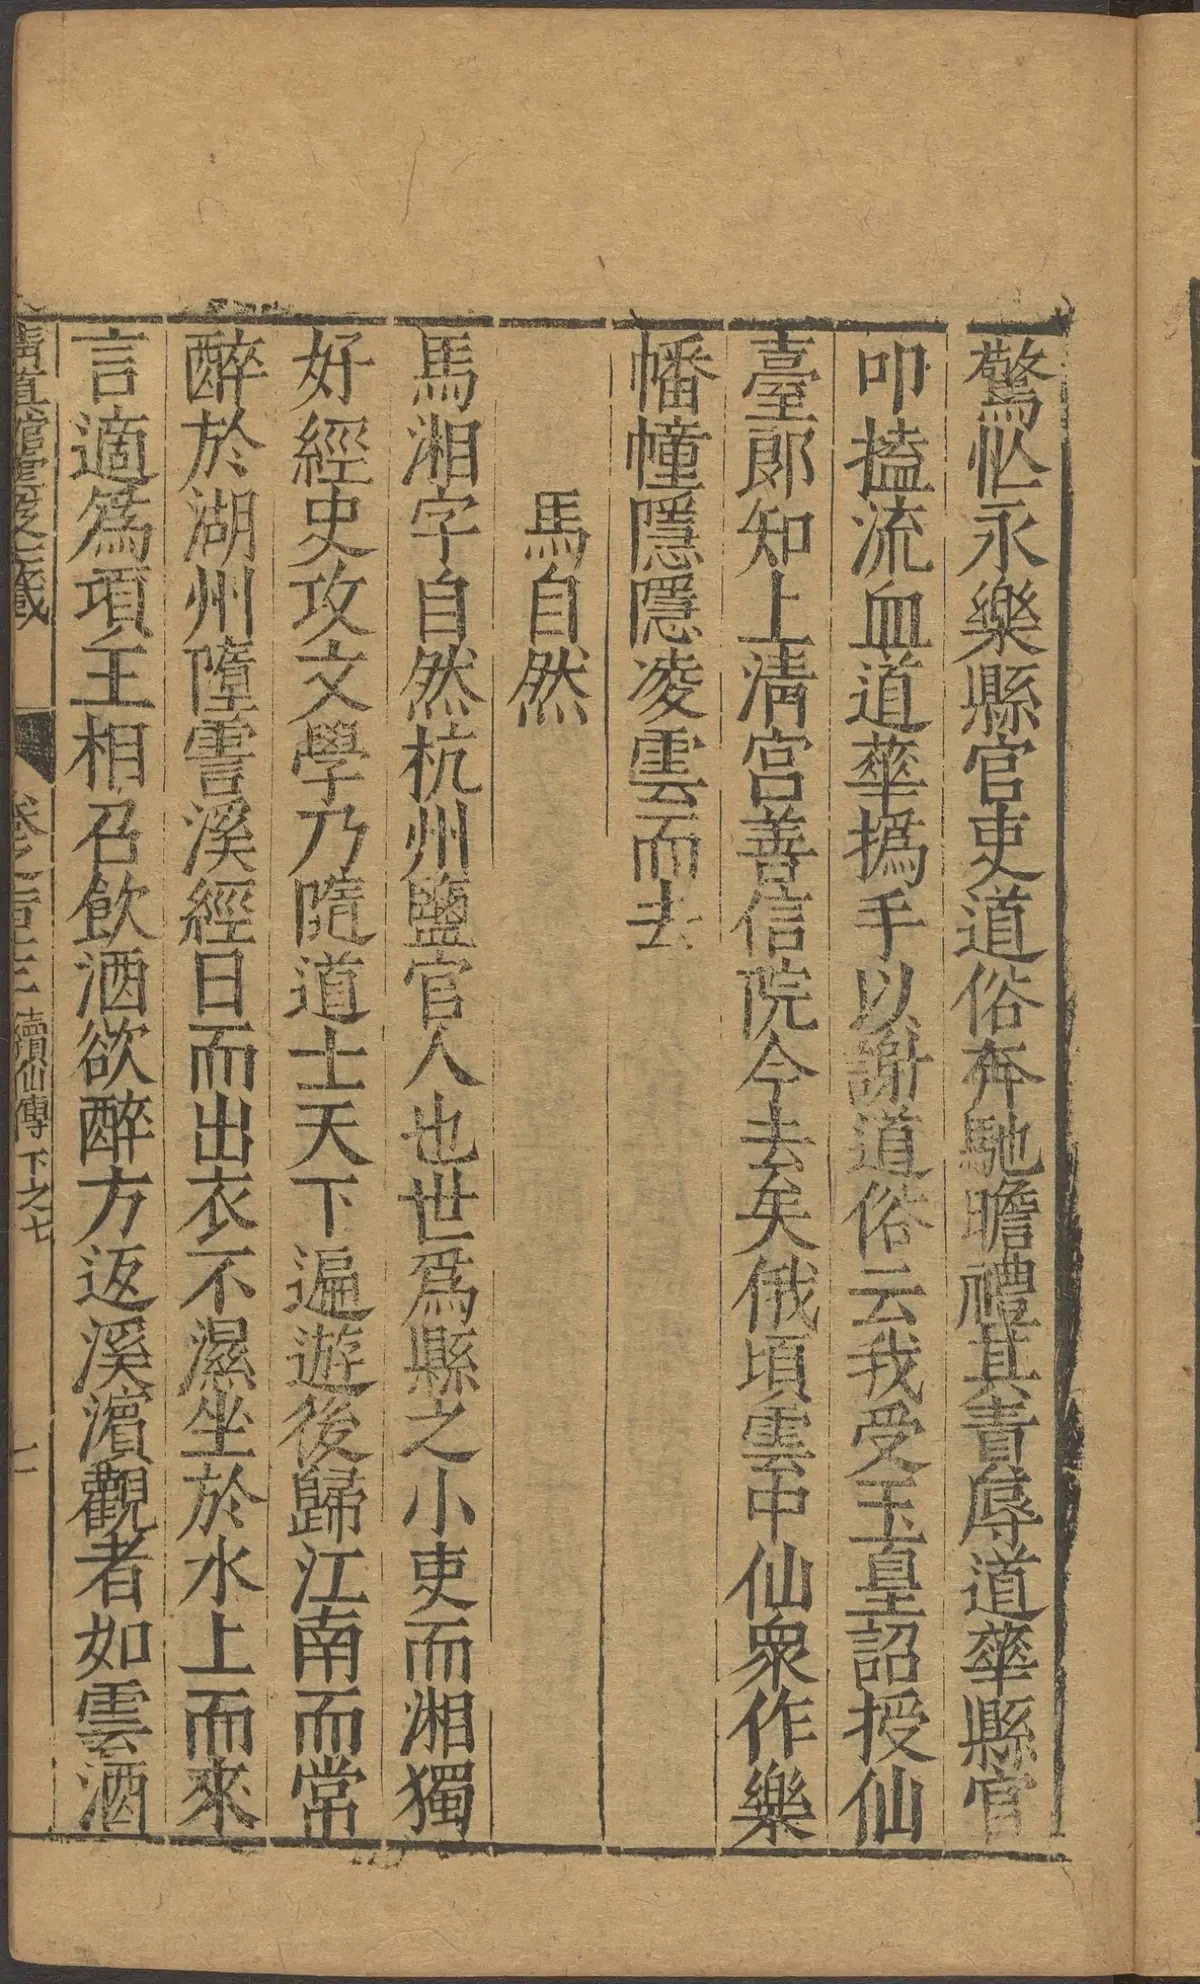 驚忙永樂縣官吏道俗奔馳瞻禮其責辱道華縣官
叩搕流血道華撝手以謝道俗云我受玉皇詔授仙
臺郎知上淸宮善信院今去矣俄頃雲中仙衆作樂
幡幢隱隱凌雲而去
馬自然
馬湘字自然杭州鹽官人也世爲縣之小吏而湘獨
好經史攻文學乃隨道士天下遍遊後歸江南而常
醉於湖州墮霅溪經日而出衣不濕坐於水上而來
言適爲項王相召飮酒欲醉方返溪濵觀者如雲酒
淸眞館雲笈七籤 卷之一百十三 續仙傳下之七 十一